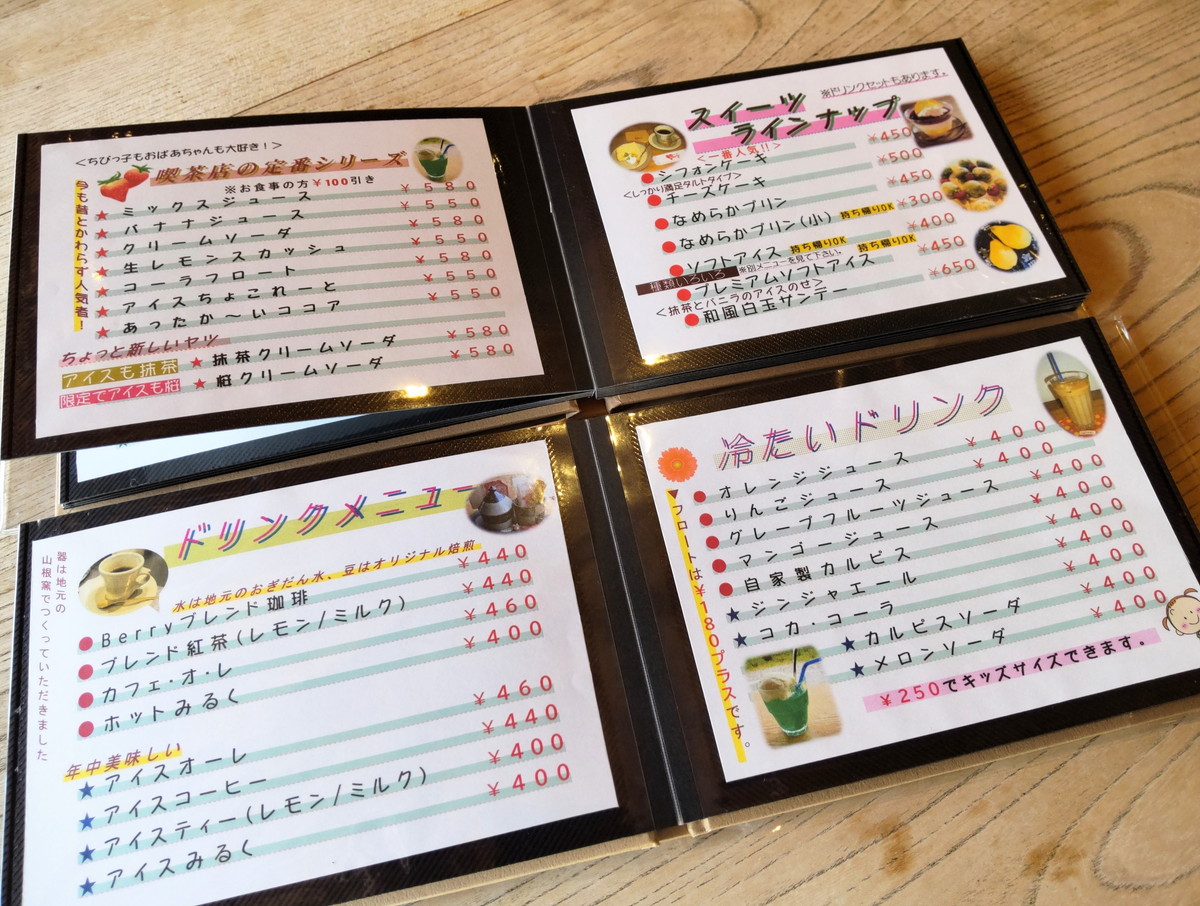 <ちびっ子もおばあちゃんも大好き！>
喫茶店の定番シリーズ
※お食事の方￥100引き
今も昔とかわらず人気者！
★ ミックスジュース ￥580
★ バナナジュース ￥550
★ クリームソーダ ￥550
★ 生レモンスカッシュ ￥580
★ コーラフロート ￥580
★ アイスちょこれーと ￥550
★ あったか～いココア ￥550
ちょっと新しいヤツ
アイスも抹茶 ★ 抹茶クリームソーダ ￥580
限定でアイスも桜 ★ 桜クリームソーダ ￥580
※ドリンクセットもあります。
スイーツ
ラインナップ
<一番人気!!>
●シフォンケーキ ￥450
<しっかり満足タルトタイプ>
●チーズケーキ ￥500
●なめらかプリン ￥450
●なめらかプリン(小) 持ち帰りOK ￥300
●ソフトアイス 持ち帰りOK 持ち帰りOK ￥400
種類いろいろ ※別メニューを見て下さい。
●プレミアムソフトアイス ￥450
<抹茶とバニラのアイスのせ>
●和風白玉サンデー ￥650
ドリンクメニュー
水は地元のおぎだん水、豆はオリジナル焙煎
器は地元の
山根窯でつくっていただきました
●Berryブレンド珈琲 ￥440
●ブレンド紅茶(レモン/ミルク) ￥440
●カフェ・オ・レ ￥460
●ホットみるく ￥400
年中美味しい
★アイスオーレ ￥460
★アイスコーヒー ￥440
★アイスティー(レモン/ミルク) ￥400
★アイスみるく ￥400
冷たいドリンク
▼フロートは￥180プラスです。
●オレンジジュース ￥400
●りんごジュース ￥400
●グレープフルーツジュース ￥400
●マンゴージュース ￥400
●自家製カルピス ￥400
★ジンジャエール ￥400
★コカ・コーラ ￥400
★カルピスソーダ ￥400
★メロンソーダ ￥400
￥250でキッズサイズできます。